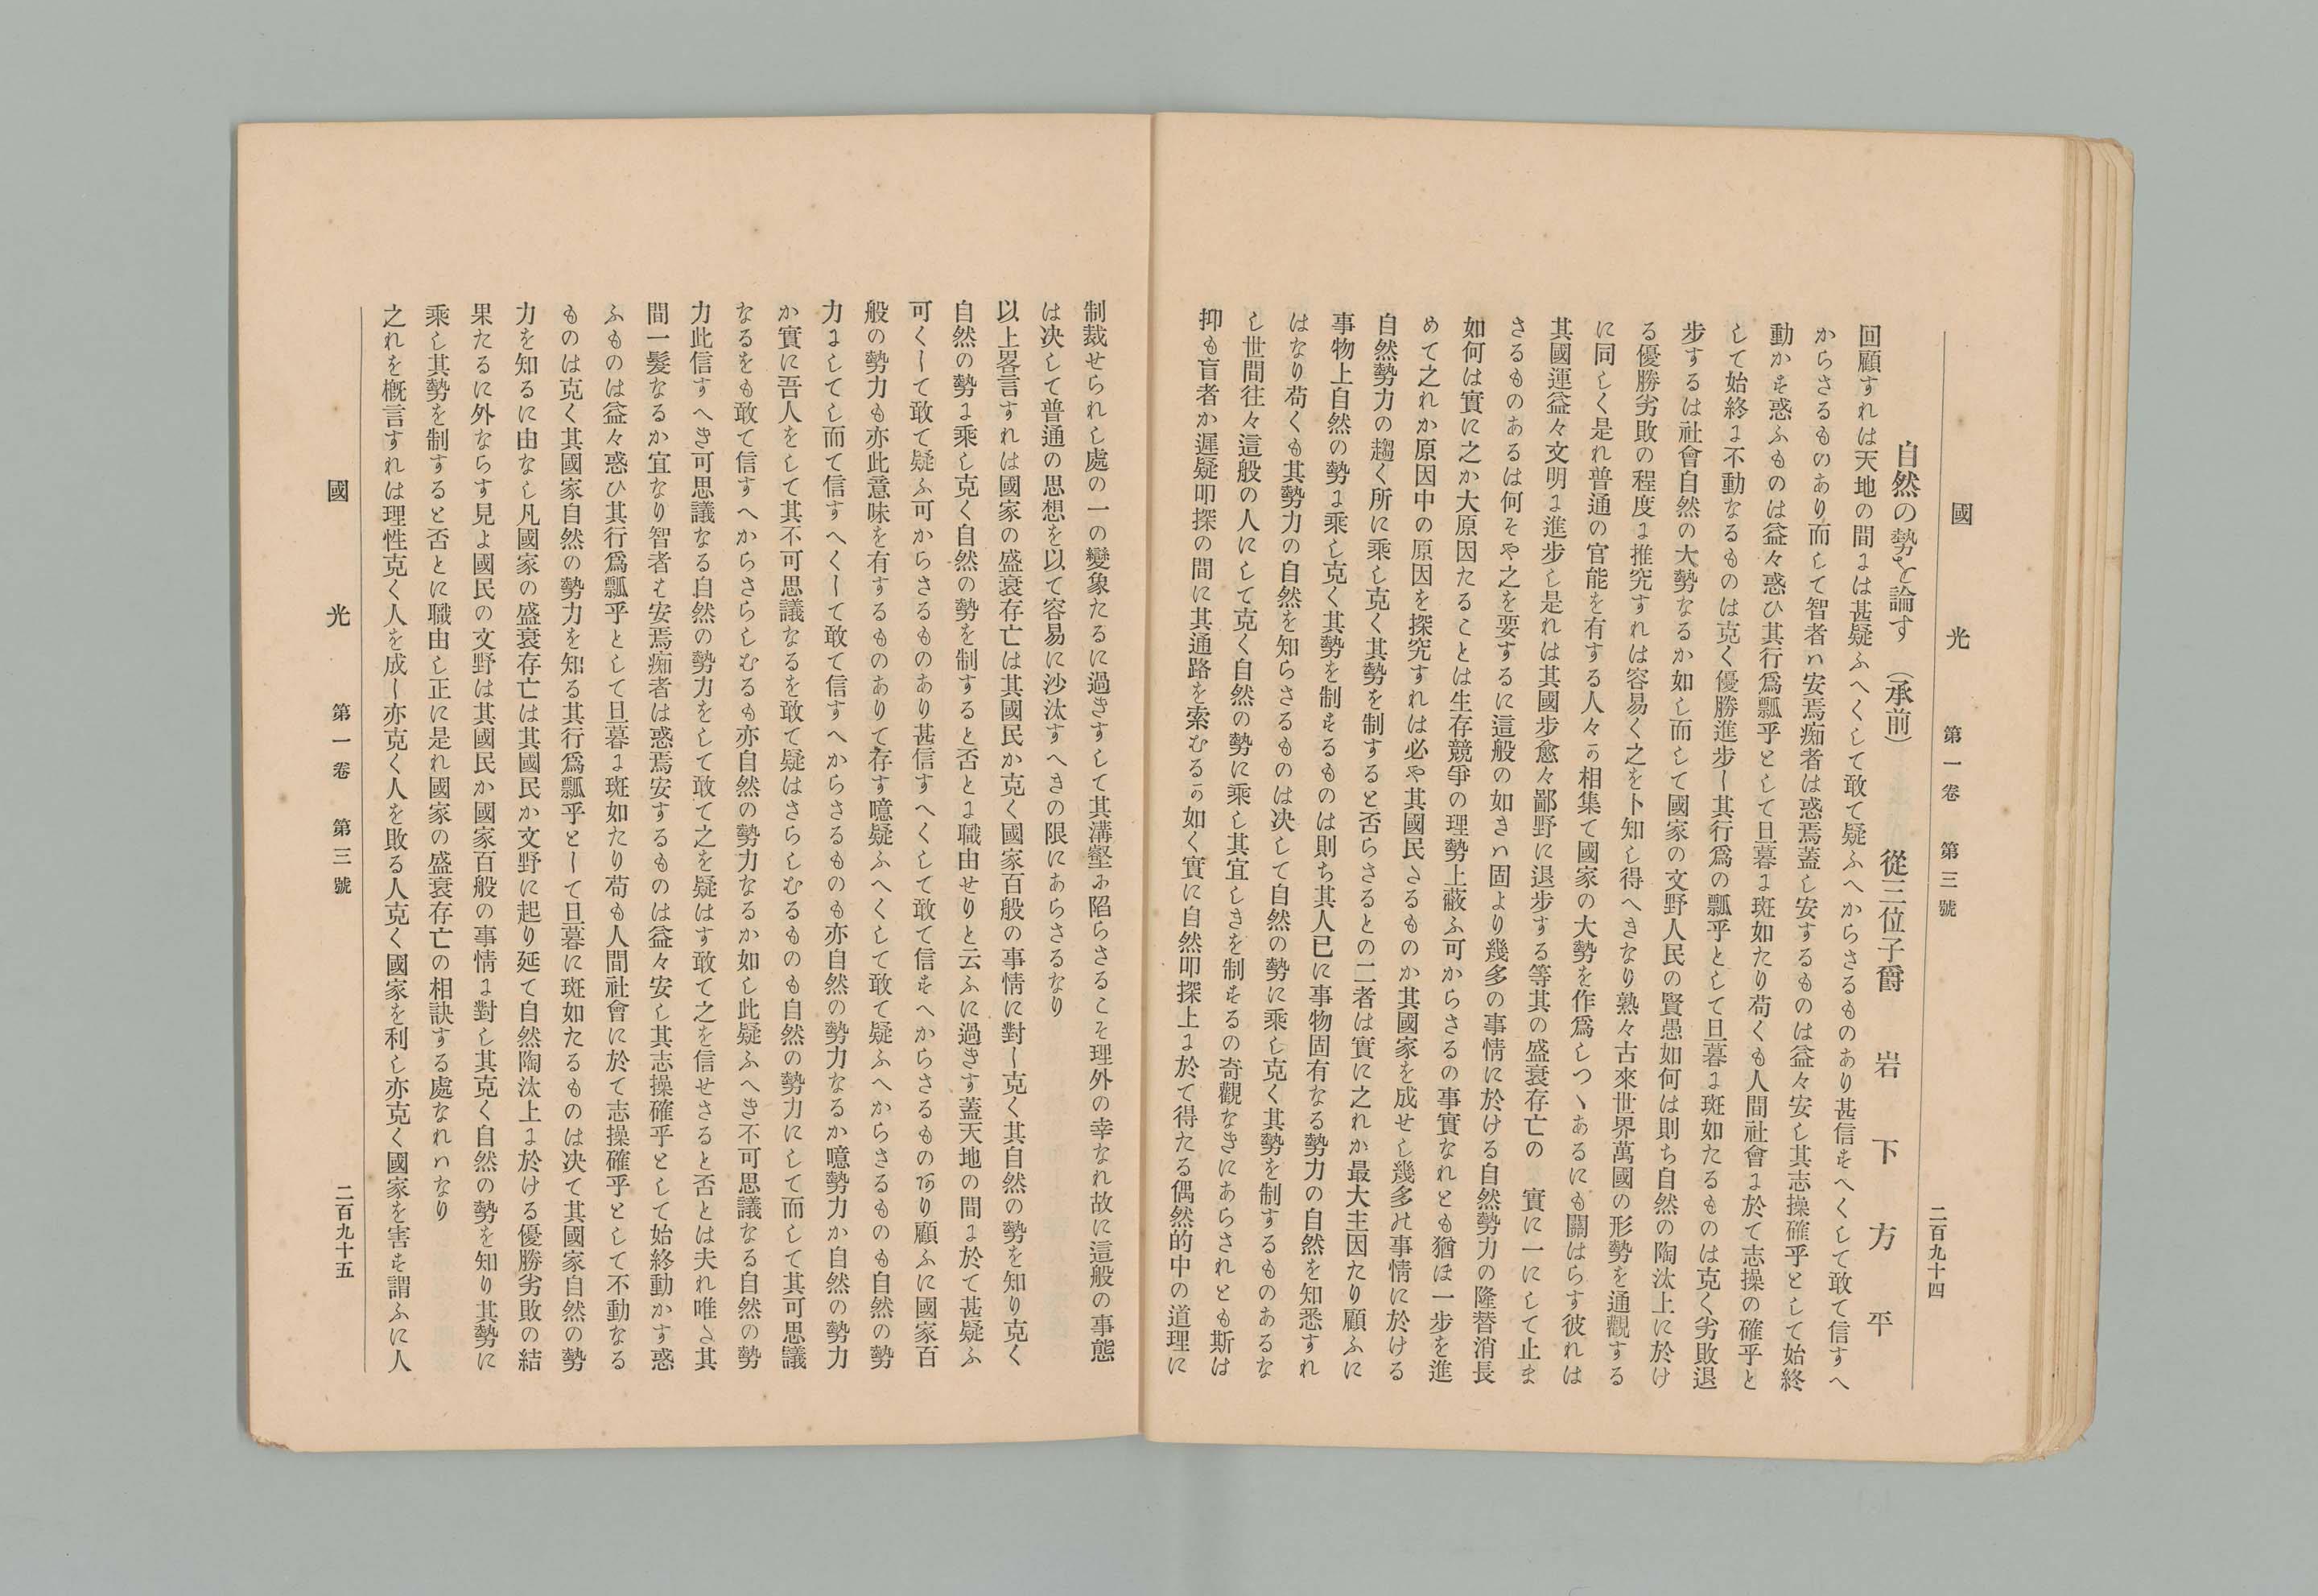 國光 第一卷 第三號 二百九十四
自然の勢を論す (承前) 從三位子爵 岩下方平
回顧すれは天地の間には甚疑ふへくして敢て疑ふへからさるものあり甚信すへくして敢て信すへ
からさるものあり而して智者ハ安焉痴者は惑焉蓋し安するものは益々安し其志操確乎として始終
動かす惑ふものは益々惑ひ其行爲瓢乎として旦暮に斑如たり苟くも人間社會に於て志操の確乎と
して始終に不動なるものは克く優勝進步し其行爲の瓢乎として旦暮に斑如たるものは克く劣敗退
步するは社會自然の大勢なるか如し而して國家の文野人民の賢愚如何は則ち自然の陶汰上に於け
る優勝劣敗の程度に推究すれは容易く之を卜知し得へきなり熟々古來世界萬國の形勢を通觀する
に同しく是れ普通の官能を有する人々か相集て國家の大勢を作爲しつゝあるにも關はらす彼れは
其國運益々文明に進步し是れは其國步愈々鄙野に退步する等其の盛衰存亡の 實に一にして止ま
さるものあるは何そや之を要するに這般の如きハ固より幾多の事情に於ける自然勢力の隆替消長
如何は實に之か大原因たることは生存競爭の理勢上蔽ふ可からさるの事實なれとも猶ほ一步を進
めて之れか原因中の原因を探究すれは必や其國民さるものか其國家を成せし幾多の事情に於ける
自然勢力の趨く所に乘し克く其勢を制すると否らさるとの二者は實に之れか最大主因たり顧ふに
事物上自然の勢に乘し克く其勢を制するものは則ち其人已に事物固有なる勢力の自然を知悉すれ
はなり苟くも其勢力の自然を知らさるものは决して自然の勢に乘し克く其勢を制するものあるな
し世間往々這般の人にして克く自然の勢に乘し其宜しきを制するの奇觀なきにあらされとも斯は
抑も盲者か遲疑叩探の間に其通路を索むるか如く實に自然叩探上に於て得たる偶然的中の道理に
制裁せられし處の一の變象たるに過きすして其溝壑に陷らさるこそ理外の幸なれ故に這般の事態
は決して普通の思想を以て容易に沙汰すへきの限にあらさるなり
以上畧言すれは國家の盛衰存亡は其國民か克く國家百般の事情に對し克く其自然の勢を知り克く
自然の勢に乘し克く自然の勢を制すると否とに職由せりと云ふに過きす蓋天地の間に於て甚疑ふ
可くして敢て疑ふ可からさるものあり甚信すへくして敢て信すへからさるものあり顧ふに國家百
般の勢力も亦此意味を有するものありて存す噫疑ふへくして敢て疑ふへからさるものも自然の勢
力にして而て信すへくして敢て信すへからさるものも亦自然の勢力なるか噫勢力か自然の勢力
か實に吾人をして其不可思議なるを敢て疑はさらしむるものも自然の勢力にして而して其可思議
なるをも敢て信すへからさらしむるも亦自然の勢力なるか如し此疑ふへき不可思議なる自然の勢
力此信すへき可思議なる自然の勢力をして敢て之を疑はす敢て之を信せさると否とは夫れ唯た其
間一髮なるか宜なり智者は安焉痴者は惑焉安するものは益々安し其志操確乎として始終動かす惑
ふものは益々惑ひ其行爲瓢乎として旦暮に斑如たり苟も人間社會に於て志操確乎として不動なる
ものは克く其國家自然の勢力を知る其行爲瓢乎として旦暮に斑如たるものは決て其國家自然の勢
力を知るに由なし凡國家の盛衰存亡は其國民か文野に起り延て自然陶汰上に於ける優勝劣敗の結
果たるに外ならす見よ國民の文野は其國民か國家百般の事情に對し其克く自然の勢を知り其勢に
乘し其勢を制すると否とに職由し正に是れ國家の盛衰存亡の相訣する處なれハなり
之れを概言すれは理性克く人を成し亦克く人を敗る人克く國家を利し亦克く國家を害す謂ふに人
國光 第一卷 第三號 二百九十五